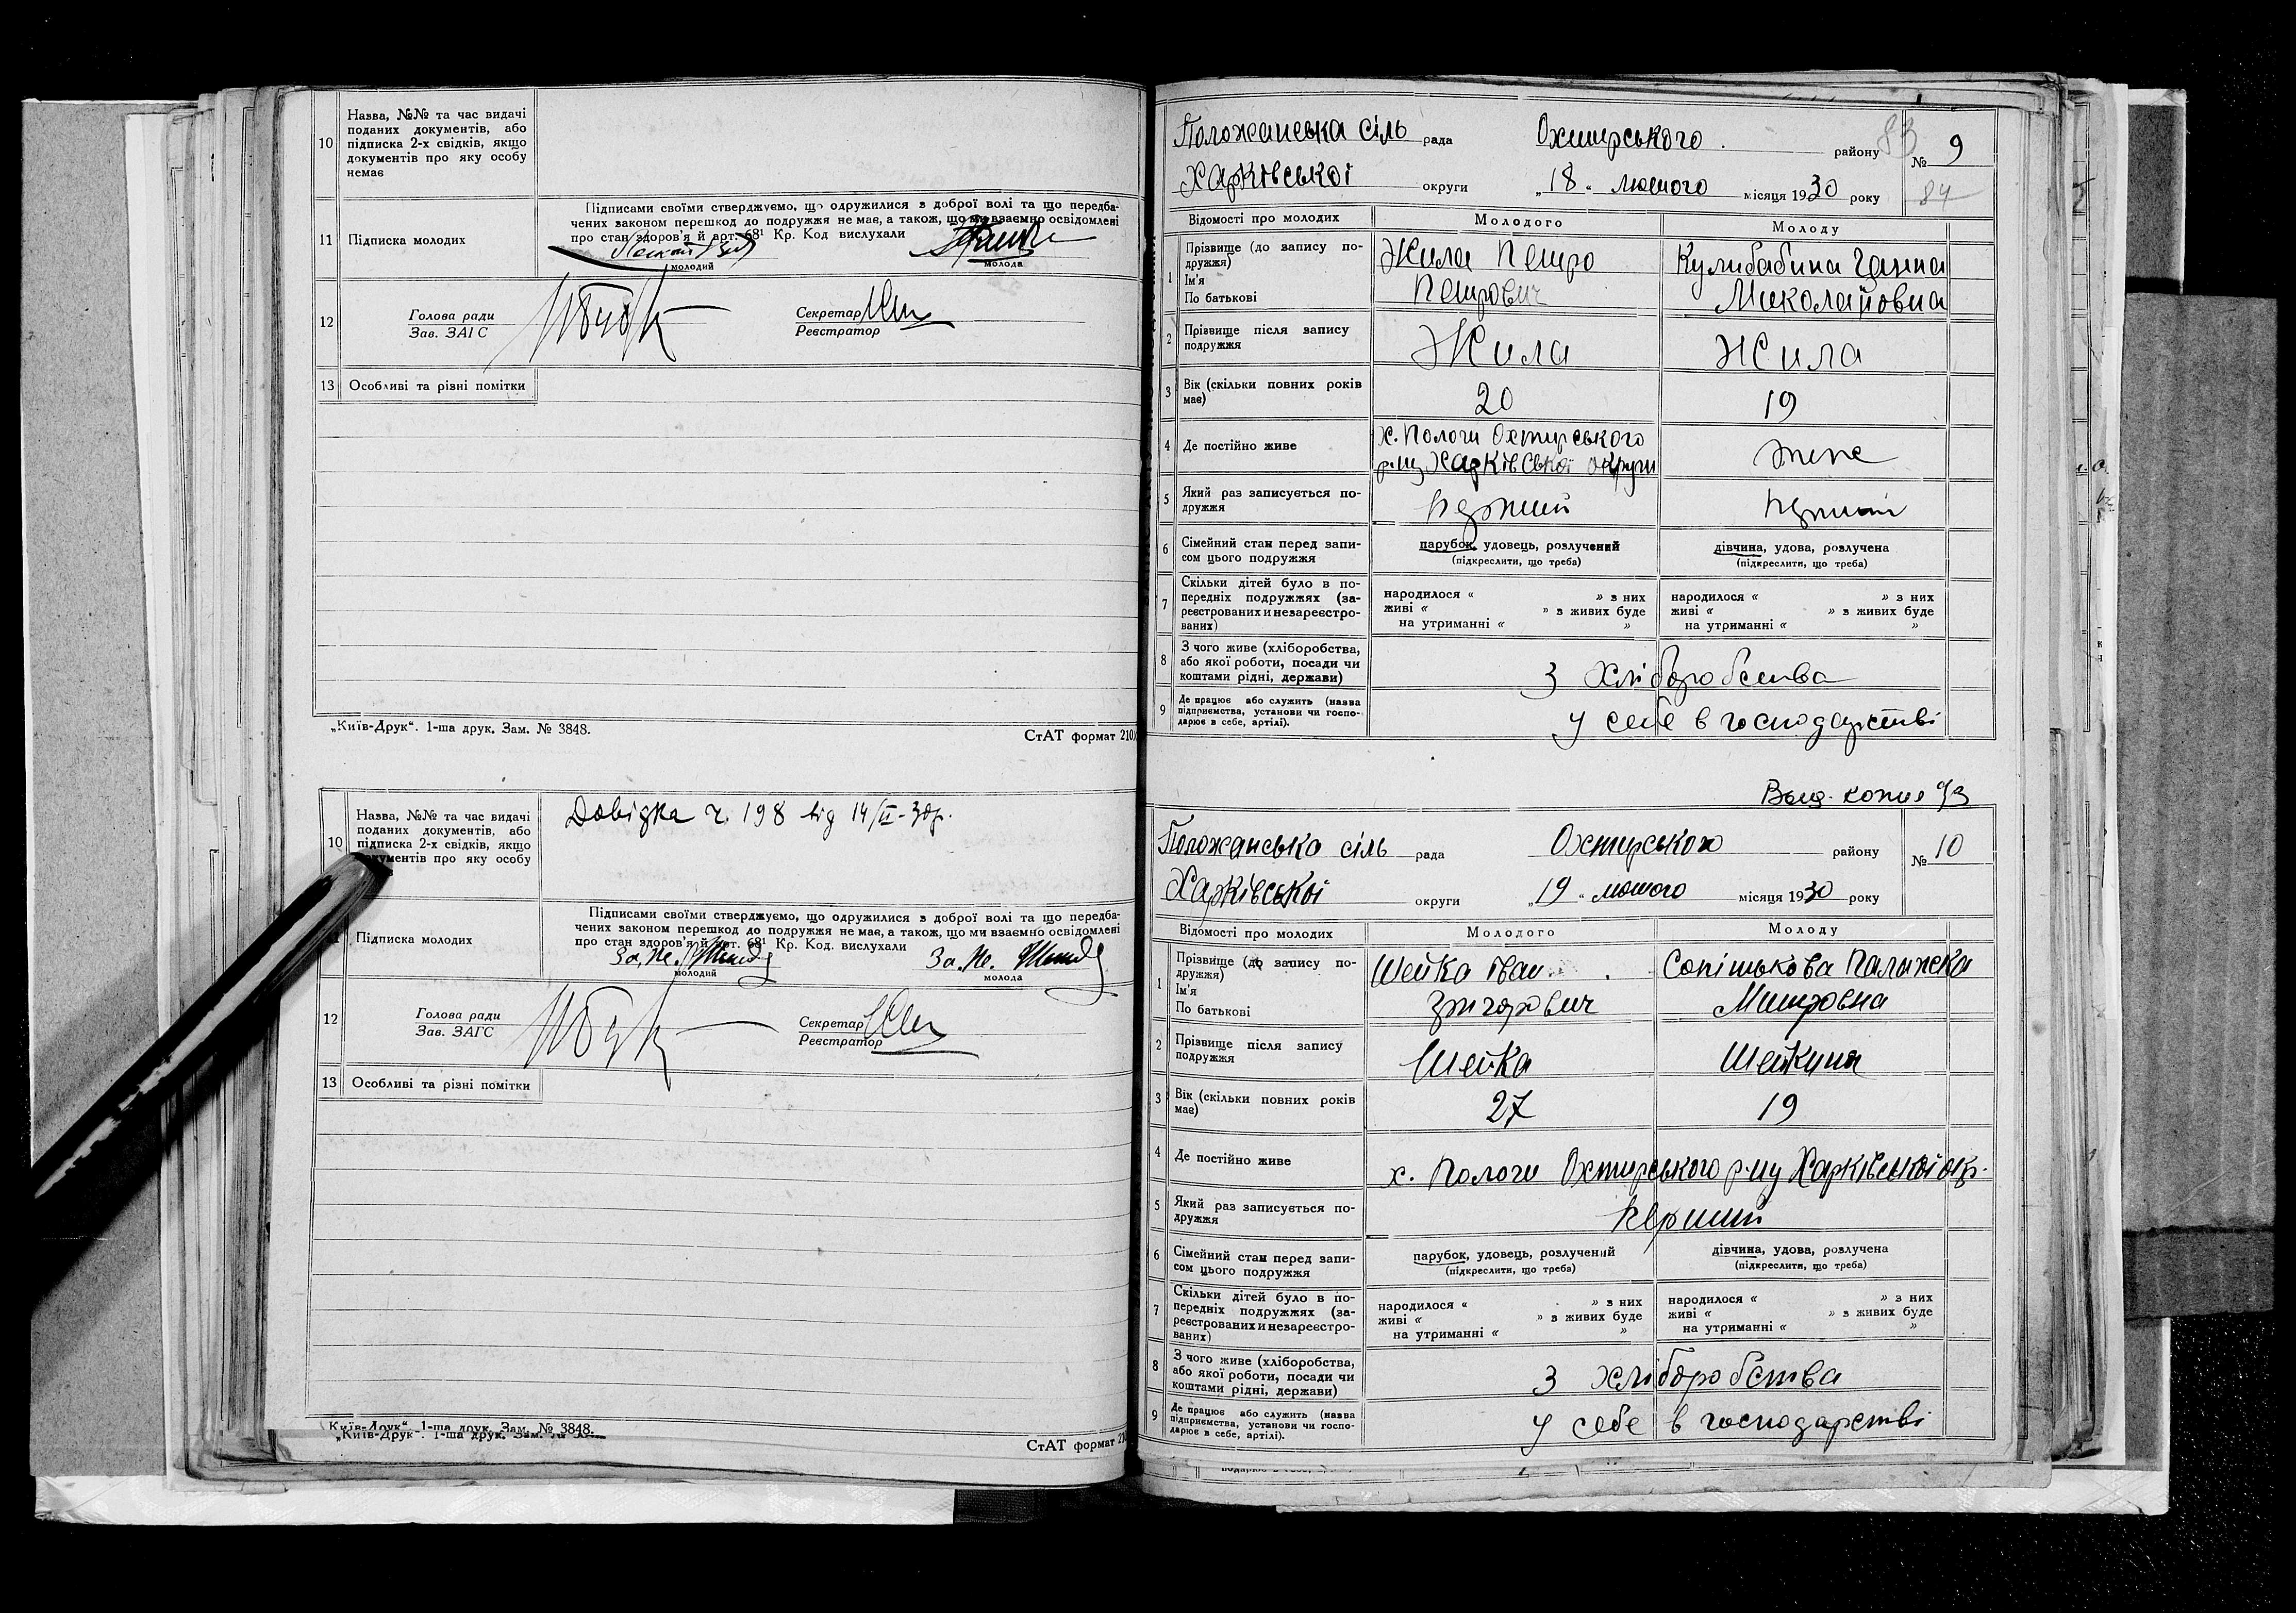 10
Назва, №№ та час видачі
поданих документів, або
підписка 2-х свідків, якщо
документів про яку особу
немає
11
Підписка молодих
Підписами своїми стверджуємо, що одружилися з доброї волі та що передба-
чених законом перешкод до подружжя не має, а також, що ми взаємно освідомлені
про стан здоров'я й арт. 68¹ Кр. Код вислухали
молодий
молода
12
Голова ради
Зав. ЗАГС
Секретар
Реєстратор
13
Особливі та різні помітки
„Київ-Друк“. 1-ша друк. Зам. № 3848.
СтАТ формат 210
10
Назва, №№ та час видачі
поданих документів, або
підписка 2-х свідків, якщо
документів про яку особу
Довідка ч. 198 від 14/II-30р.
Підписка молодих
Підписами своїми стверджуємо, що одружилися з доброї волі та що передба-
чених законом перешкод до подружжя не має, а також, що ми взаємно освідомлені
про стан здоров'я й арт. 68¹ Кр. Код. вислухали
За. Не.
молодий
За. Не.
молода
12
Голова ради
Зав. ЗАГС
Секретар
Реєстратор
13
Особливі та різні помітки
„Київ-Друк“. 1-ша друк. Зам. № 3848.
„Київ-Друк“. 1-ша друк. Зам.
СтАТ формат 210
Положанська сіль рада Охтирського району 83 № 9
Харківської округи „18“ лютого місяця 1930 року 84
Відомості про молодих Молодого Молоду
1 Прізвище (до запису по-
дружжя)
Ім'я
По батькові
Жила Петро
Петрович
Кулибабина Ганна
Миколаївна
2 Прізвище після запису
подружжя
Жила Жила
3 Вік (скільки повних років
має)
20 19
4 Де постійно живе
х. Пологи Охтирського
р-ну Харківської округи
5 Який раз записується по-
дружжя
перший перший
6 Сімейний стан перед запи-
сом цього подружжя
парубок, удовець, розлучений
(підкреслити, що треба)
дівчина, удова, розлучена
(підкреслити, що треба)
7 Скільки дітей було в по-
передніх подружжях (за-
реєстрованих и незареєстро-
ваних)
народилося « » з них
живі « » з живих буде
на утриманні « »
народилося « » з них
живі « » з живих буде
на утриманні « »
8 З чого живе (хліборобства,
або якої роботи, посади чи
коштами рідні, держави)
З хліборобства
9 Де працює або служить (назва
підприємства, установи чи госпо-
дарює в себе, артілі).
У себе в господарстві
Положанська сіль рада Охтирського району № 10
Харківської округи „19“ лютого місяця 1930 року
Відомості про молодих Молодого Молоду
1 Прізвище (до запису по-
дружжя)
Ім'я
По батькові
Шейка Іван
Григорович
Сопітькова Палажка
Митровна
2 Прізвище після запису
подружжя
Шейка Шейкина
3 Вік (скільки повних років
має)
27 19
4 Де постійно живе
х. Пологи Охтирського р-ну Харківської окр.
5 Який раз записується по-
дружжя
перший
6 Сімейний стан перед запи-
сом цього подружжя
парубок, удовець, розлучений
(підкреслити, що треба)
дівчина, удова, розлучена
(підкреслити, що треба)
7 Скільки дітей було в по-
передніх подружжях (за-
реєстрованих и незареєстро-
ваних)
народилося « » з них
живі « » з живих буде
на утриманні « »
народилося « » з них
живі « » з живих буде
на утриманні « »
8 З чого живе (хліборобства,
або якої роботи, посади чи
коштами рідні, держави)
З хліборобства
9 Де працює або служить (назва
підприємства, установи чи госпо-
дарює в себе, артілі).
У себе в господарстві